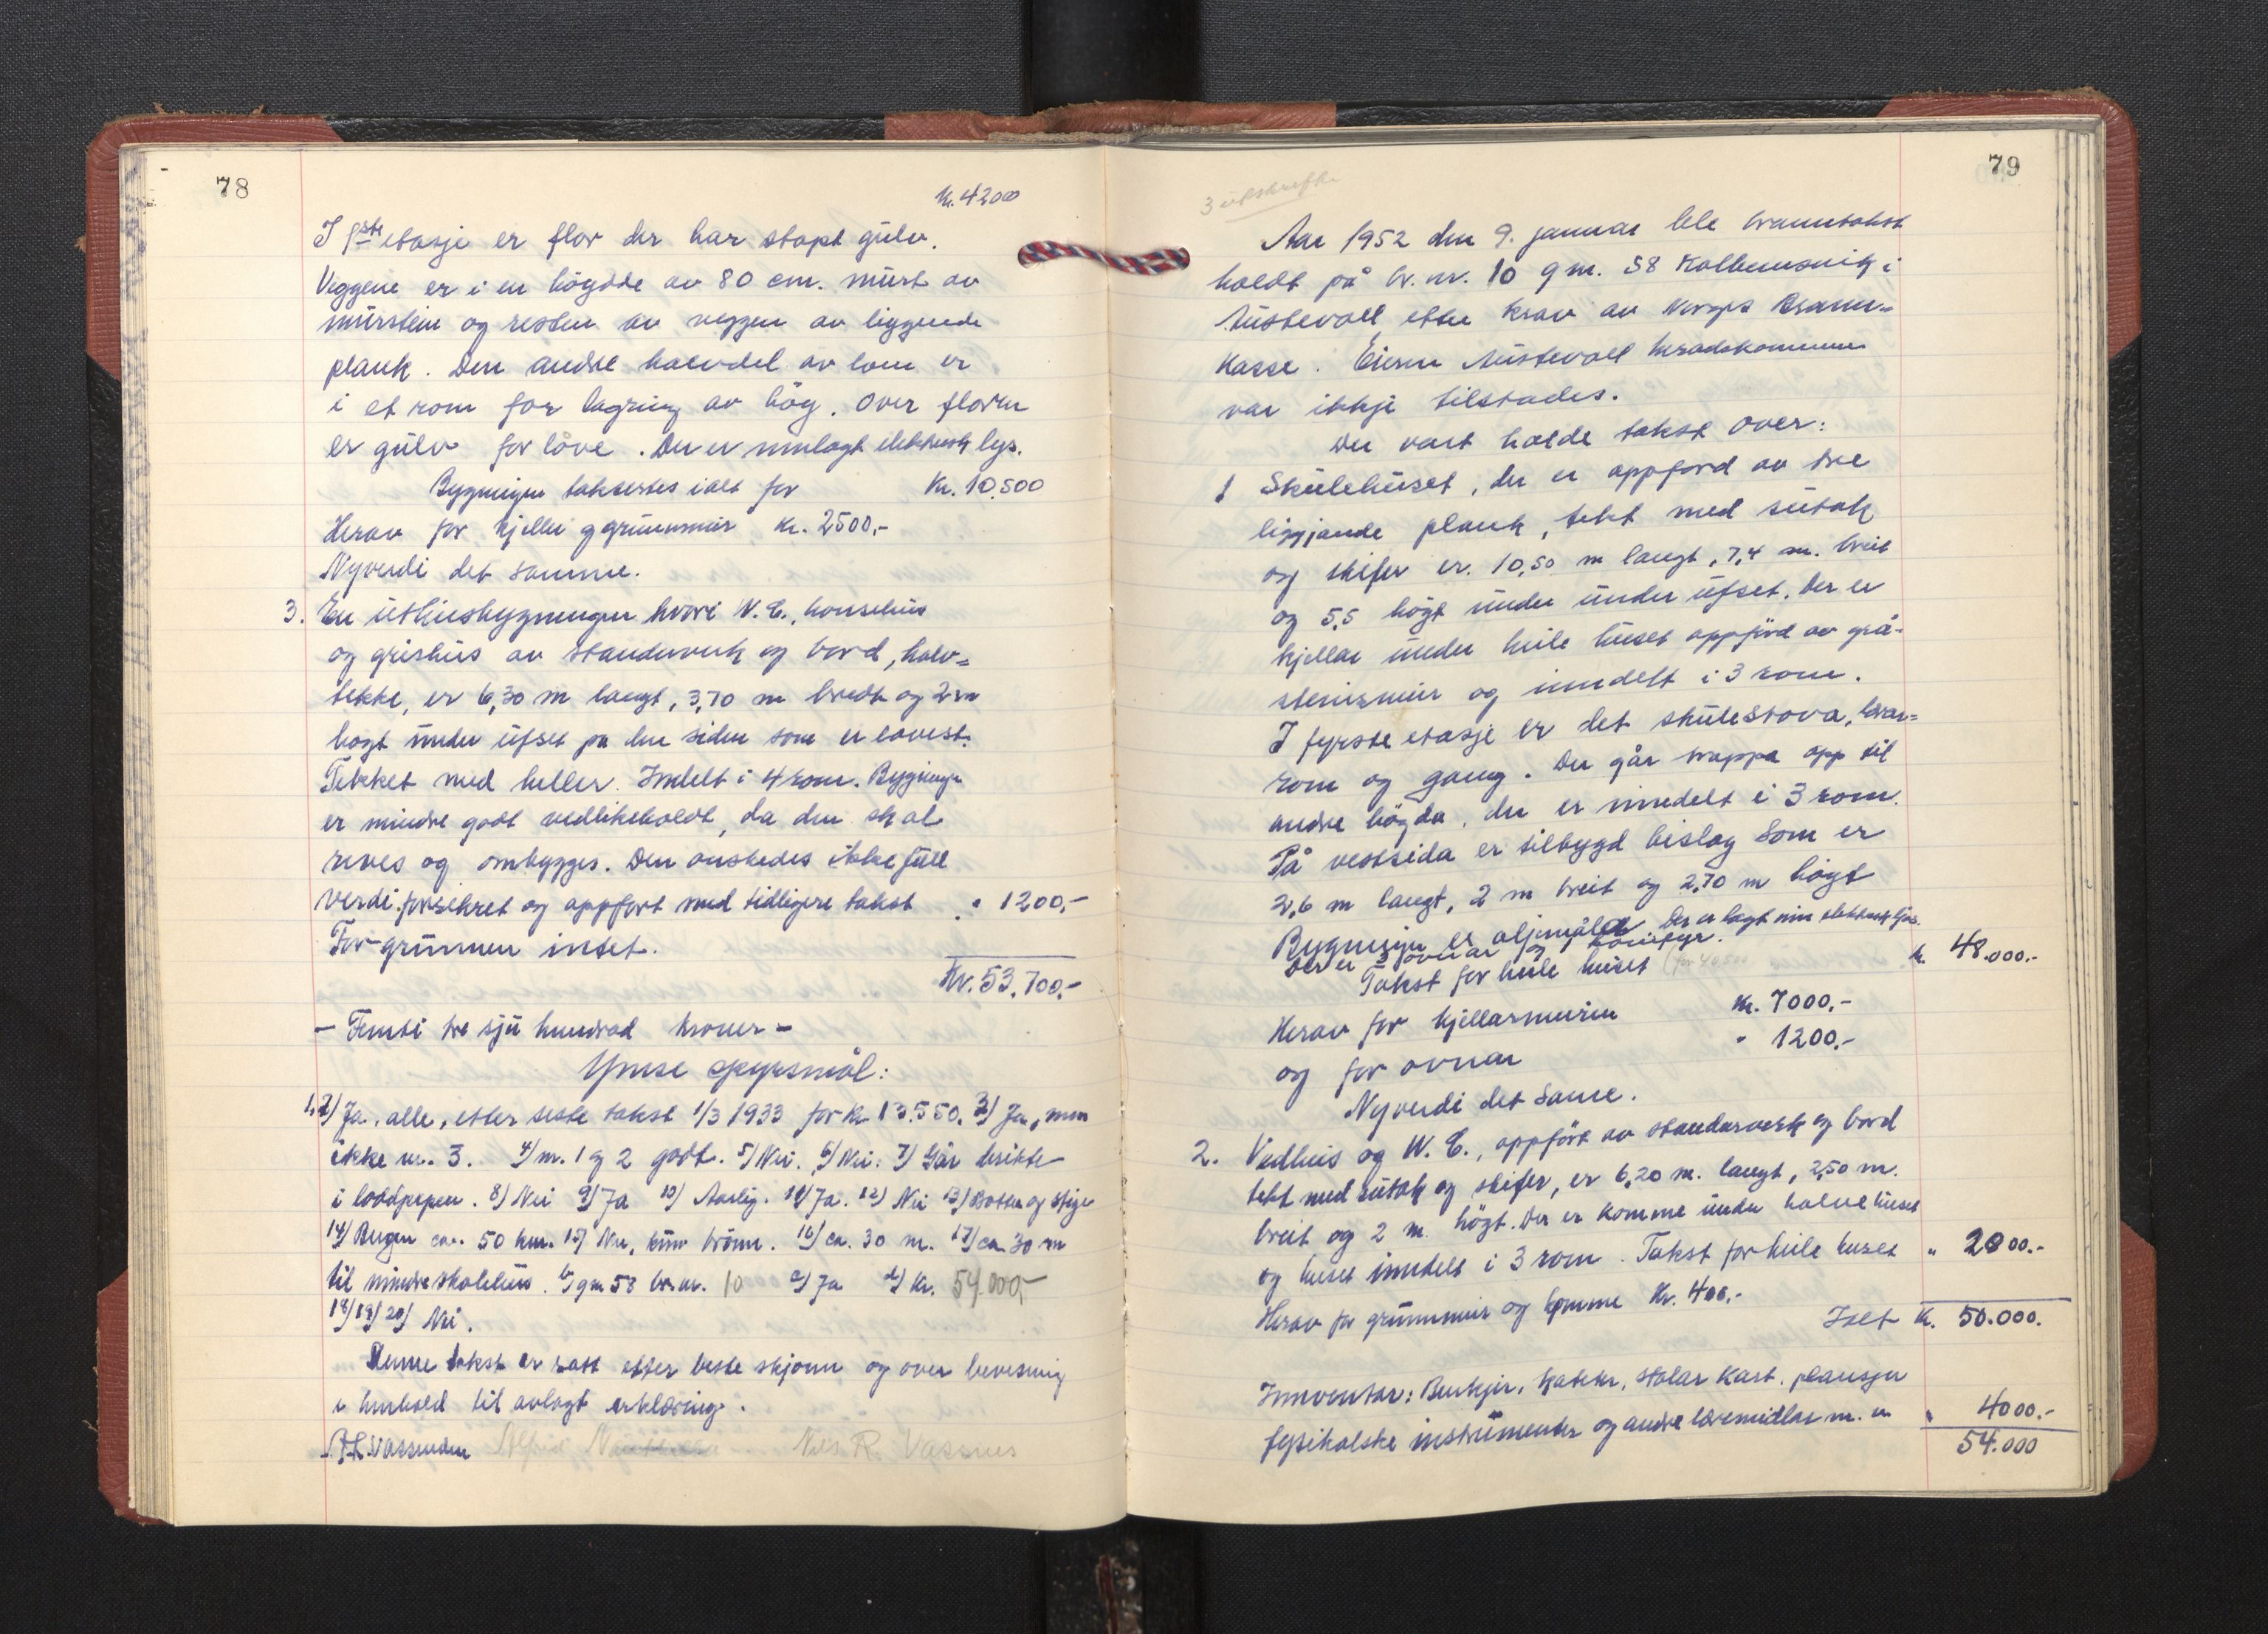 78
Kr. 42000
I 1ste etasje er flor der har støpt gulv.
Veggene er i en høgdde av 80 cm. murt av
murstein og resten av veggen av liggende
plank. Den andre halvdel av løen er
i et rom for lagring av høy. Over floren
er gulv for løve. Der er innlagt elektrisk lys.
Bygningen takseres ialt for Kr. 10.500
Herav for kjeller og grunnmur Kr. 2500,-
Nyverdi det samme.
3. En uthusbygningen hvori W.C., hønsehus
og grishus av standerverk og bord, halv=
tekke, er 6,30 m langt, 3,70 m bredt og 2 m
høgt under ufset på den siden som er lavest.
Tekket med heller. Inndelt i 4 rom. Bygningen
er mindre godt vedlikeholdt, da den skal
reves og ombygges. Den ønskedes ikke full
verdi forsikret og oppført med tidligere takst " 1200,-
For grunnen intet.
Kr. 53.700,-
- Femti tre sju hundrad kroner -
Ymse spyrsmål:
1, 2) Ja, alle, etter siste takst 1/3 1933 for kr 13.550. 3) Ja, men
ikke nr. 3. 4) nr. 1 og 2 godt. 5) Nei. 6) Nei. 7) Går direkte
i loddpipen. 8) Nei 9) Ja 10) Årlig. 11) Ja. 12) Nei 13) Bøtter og stige
14) Bergen ca. 50 km. 15) Nei, kun brønn. 16) ca. 30 m. 17) ca. 30 m
til mindre skolehus. b) gnr 58 br.nr. 10 c) Ja d) Kr. 54.000,-
18) 19) 20) Nei.
Denne takst er satt etter beste skjønn og overbevisning
i henhold til avlagt erklæring.
Vassenden Alfred Nils R. Vassnes
79
3 utskrifter
Aar 1952 den 9. januar ble branntakst
holdt på br. nr. 10 gnr. 58 Kolbeinsvik i
Austevoll etter krav av Norges Brann=
kasse. Eieren Austevoll heradskommune
var ikkje tilstades.
Der vart halde takst over:
1 Skulehuset, der er oppförd av tre
liggjande plank, tekt med sutak
og skifer er. 10,50 m langt, 7,4 m. breit
og 5,5 högt under under ufset. Der er
kjellar under heile huset oppförd av grå-
steinsmur og inndelt i 3 rom.
I fyrste etasje er det skulestova, lærar=
rom og gang. Der går trappa opp til
andre högda, der er inndelt i 3 rom.
På vestsida er tilbygd bislag som er
2,6 m langt, 2 m breit og 2,70 m högt
Bygningen er oljemålet Der er lagt inn elektrisk ljos.
Der er 3 ovnar og
Takst for heile huset (for 40500 k. 48.000.-
Herav for kjellarmuren Kr. 7000.-
og for ovnar " 1200.-
Nyverdi det same.
2. Vedhus og W.C., oppfört av standarverk og bord
tekt med sutak og skifer, er 6,20 m. langt, 2,50 m.
breit og 2 m. högt. Der er komme under halve huset
og huset inndelt i 3 rom. Takst for heile huset " 2000.-
Herav for grunnmur og komme Kr. 400.-
Ialt K. 50.000.
Innventar: Benkjer, kateter, stolar kart. plansjer
fysikalske instrumenter og andre læremidlar m. m " 4000.-
54.000